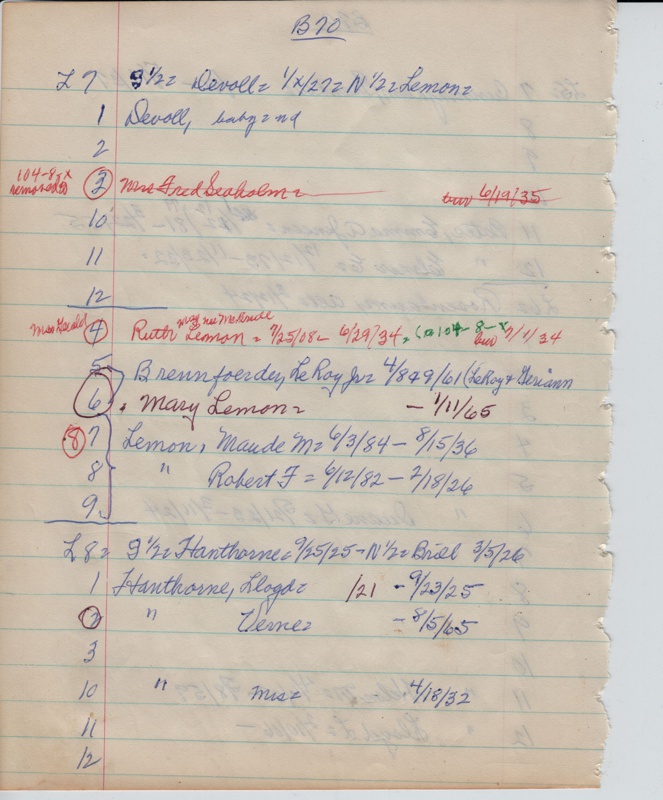 B70
L 7 S 1/2= Devoll= 1/x/27= N 1/2= Lemon=
1 Devoll, baby= nd
2
104-8-x
removed to 3 Mrs Fred Seaholm= bur 6/19/35
10
11
12
may nee McBride
4 Ruth Lemon = 7/25/08- 6/29/34, (to 104-8-x bur 7/1/34
5 Brennfoerder, LeRoy Jr= 4/849/61 (LeRoy + Geriann
6 . Mary Lemon= - 1/11/65
8 7 Lemon, Maude M= 6/3/84 - 8/15/36
8 " Robert F = 6/12/82 - 2/18/26
9
L 8= S 1/2= Hanthorne= 9/25/25 - N 1/2= Brill 3/5/26
1 Hanthorne, Lloyd= 1/21 - 9/23/25
2 " Verne= - 8/5/65
3
10 " Mrs= - 4/18/32
11
12